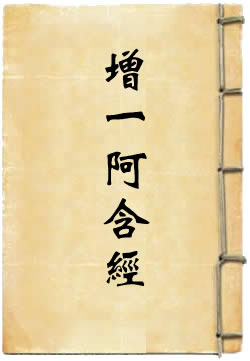 增一阿含經